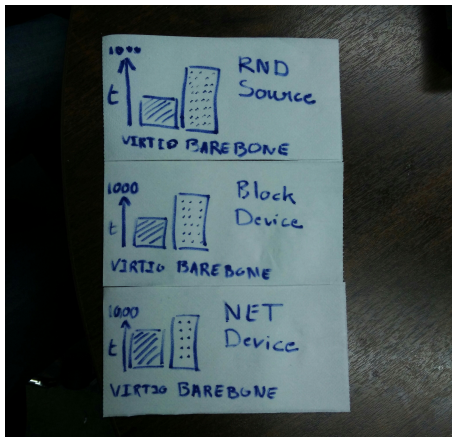 1000
RND
Source
t
VIRTIO BAREBONE
1000
Block
Device
t
VIRTIO BAREBONE
1000
NET
Device
t
VIRTIO BAREBONE